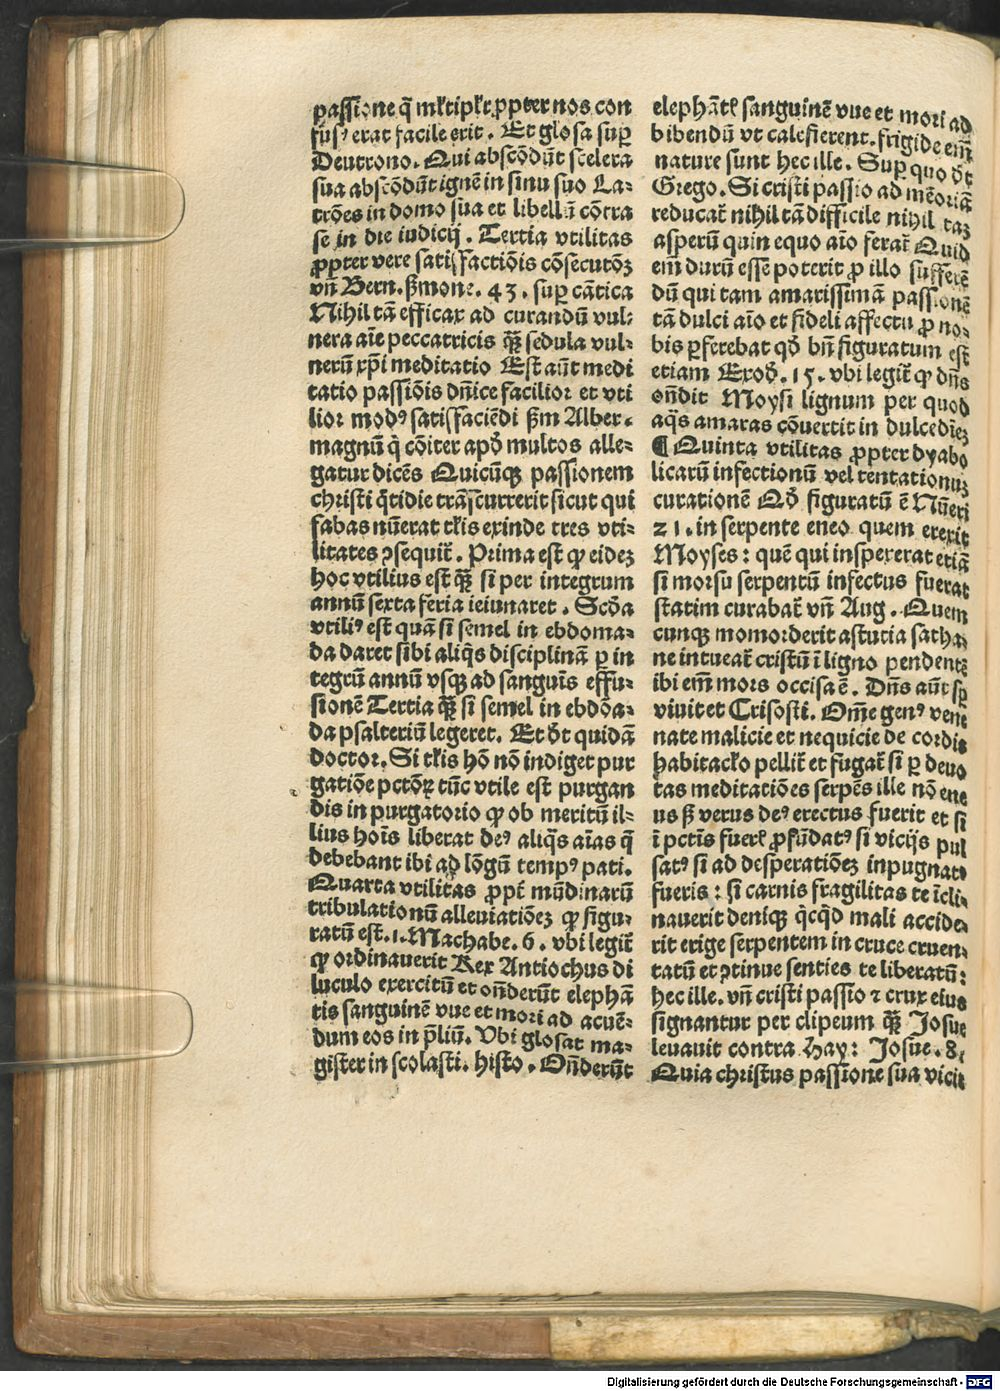 passione q̄ mk̄tipk̄r ꝓpter nos con
fusꝰ erat facile erit. Et glosa suꝑ
Deutrono. Qui abscōdūt scelera
sua abscōdūt ignē in sinu suo La-
trōes in domo sua et libellū cōtra
se in die iudicij. Tertia vtilitas
ꝓpter vere satisfactiōis cōsecutōꝫ
vñ Bern. ẞmone. 43. suꝑ cātica
Nihil tā efficax ad curandū vul-
nera aīe peccatricis qȝ̄ sedula vul-
nerū xp̄i meditatio Est aūt medi
tatio passiōis dn̄ice facilior et vti
lior modꝰ satisfaciēdi ẞm Alber-
magnū q̄ cōiter apd̄ multos alle-
gatur dicēs Quicūqꝫ passionem
christi q̄tidie trāscurrerit sicut qui
fabas nūerat tk̄is exinde tres vti-
litates ꝯsequit̄. Prima est ꝙ eideꝫ
hoc vtilius est qȝ̄ si per integrum
annū sexta feria ieiunaret. Scd̄a
vtiliꝰ est quā si semel in ebdoma-
da daret sibi aliq̄s disciplinā ꝑ in
tegrū annū vsqꝫ ad sanguīs effu-
sionē Tertia qȝ̄ si semel in ebdōa-
da psalteriū legeret. Et d̄t quidā
doctor. Si tk̄is hō nō indiget pur
gatiōe pctōꝝ tūc vtile est purgan
dis in purgatorio ꝙ ob meritū il-
lius hoīs liberat deꝰ aliq̄s aīas q̄
debebant ibi ad lōgū tempꝰ pati.
Quarta vtilitas ꝓpt̄ mūdinarū
tribulationū alleuiatiōeꝫ ꝙ figu-
ratū est. 1. Machabe. 6. vbi legit̄
ꝙ ordinauerit Rex Antiochus di
luculo exercitū et on̄derūt elephā
tis sanguinē vue et mori ad acuē-
dum eos in p̄liū. Vbi glosat ma-
gister in scolasti. histo. On̄derūt
elephāt̄ sanguinē vue et mori ad
bibendū vt calefierent. frigide em̄
nature sunt hec ille. Suꝑ quo d̄t
Grego. Si cristi passio ad mēoriā
reducat̄ nihil tā difficile nihil taꝫ
asperū quin equo aīo ferat̄ Quid
em̄ durū esse poterit ꝓ illo sufferē
dū qui tam amarissimā passionē
tā dulci aīo et fideli affectu ꝓ no-
bis ꝑferebat qd̄ bn̄ figuratum est
etiam Exod̄. 15. vbi legit̄ ꝙ dn̄s
on̄dit Moysi lignum per quod
aq̄s amaras cōuertit in dulcedīeꝫ
¶ Quinta vtilitas ꝓpter dyabo
licarū infectionū vel tentationuꝫ
curationē Qd̄ figuratū ē Nūeri
21. in serpente eneo quem erexit
Moyses: quē qui inspexerat etiā
si morsu serpentū infectus fuerat
statim curabat̄ vñ Aug. Quem
cunqꝫ momorderit astutia satha-
ne intueat̄ cristū ī ligno pendentꝫ
ibi em̄ mors occisa ē. Dn̄s aūt sꝑ
viuit et Crisosti. Om̄e genꝰ vene
nate malicie et nequicie de cordis
habitacko pellit̄ et fugat̄ si ꝑ deuo
tas meditatiōes serpēs ille nō ene
us ẞ verus deꝰ erectus fuerit et si
ī pctīs fuer̄ ꝓfūdatꝰ si vicijs pul
satꝰ si ad desperatiōeꝫ inpugnatꝰ
fueris: si carnis fragilitas te īcli-
nauerit deniqꝫ q̄cq̄d mali accide-
rit erige serpentem in cruce cruen-
tatū et ꝯtinue senties te liberatū:
hec ille. vñ cristi passio ⁊ crux eius
signantur per clipeum qȝ̄ Josue
leuauit contra Hay: Josue. 8.
Quia christus passione sua vicit
Digitalisierung gefördert durch die Deutsche Forschungsgemeinschaft - DFG